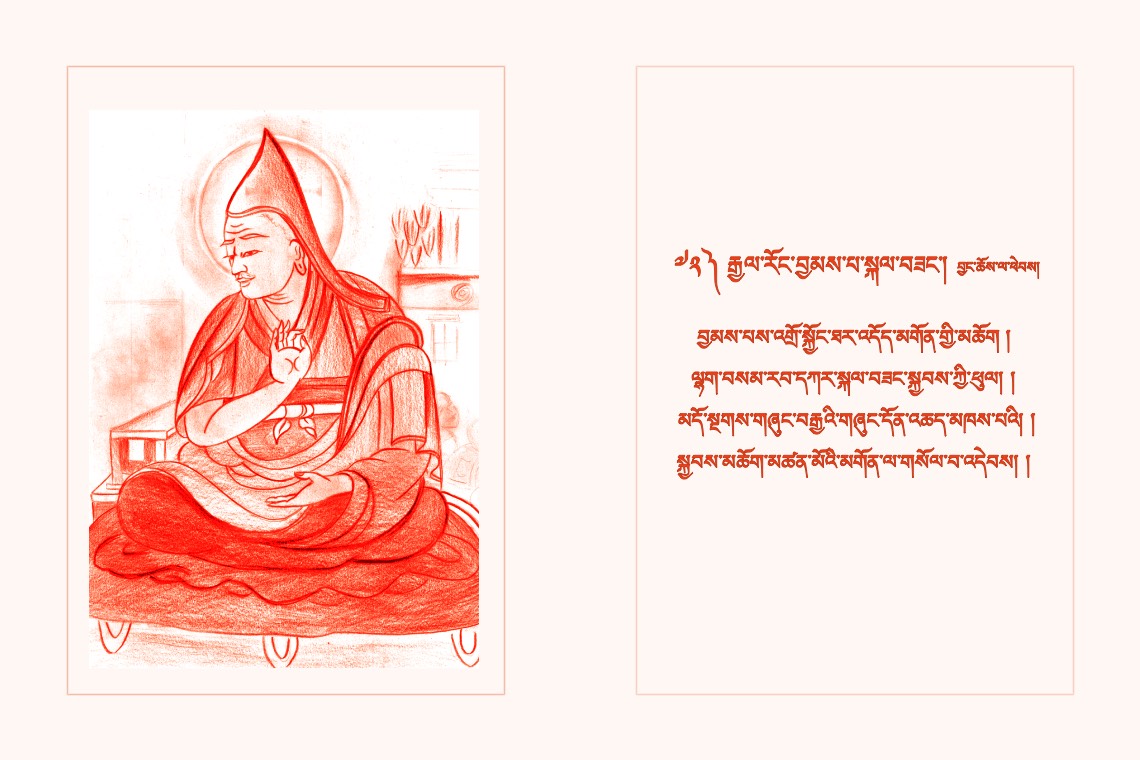 ༧༢༽ རྒྱལ་རོང་བྱམས་པ་སྐལ་བཟང་། བྱང་ཆོས་ལ་ཕེབས།
བྱམས་པས་འགྲོ་སྐྱོང་ཐར་འདོད་མགོན་གྱི་མཆོག །
ལྷག་བསམ་རབ་དཀར་སྐལ་བཟང་སྐྱབས་ཀྱི་ཕུལ། །
མདོ་སྔགས་གཞུང་བརྒྱའི་གཞུང་དོན་འཆད་མཁས་པའི། །
སྐྱབས་མཆོག་མཚན་མོའི་མགོན་ལ་གསོལ་བ་འདེབས། །